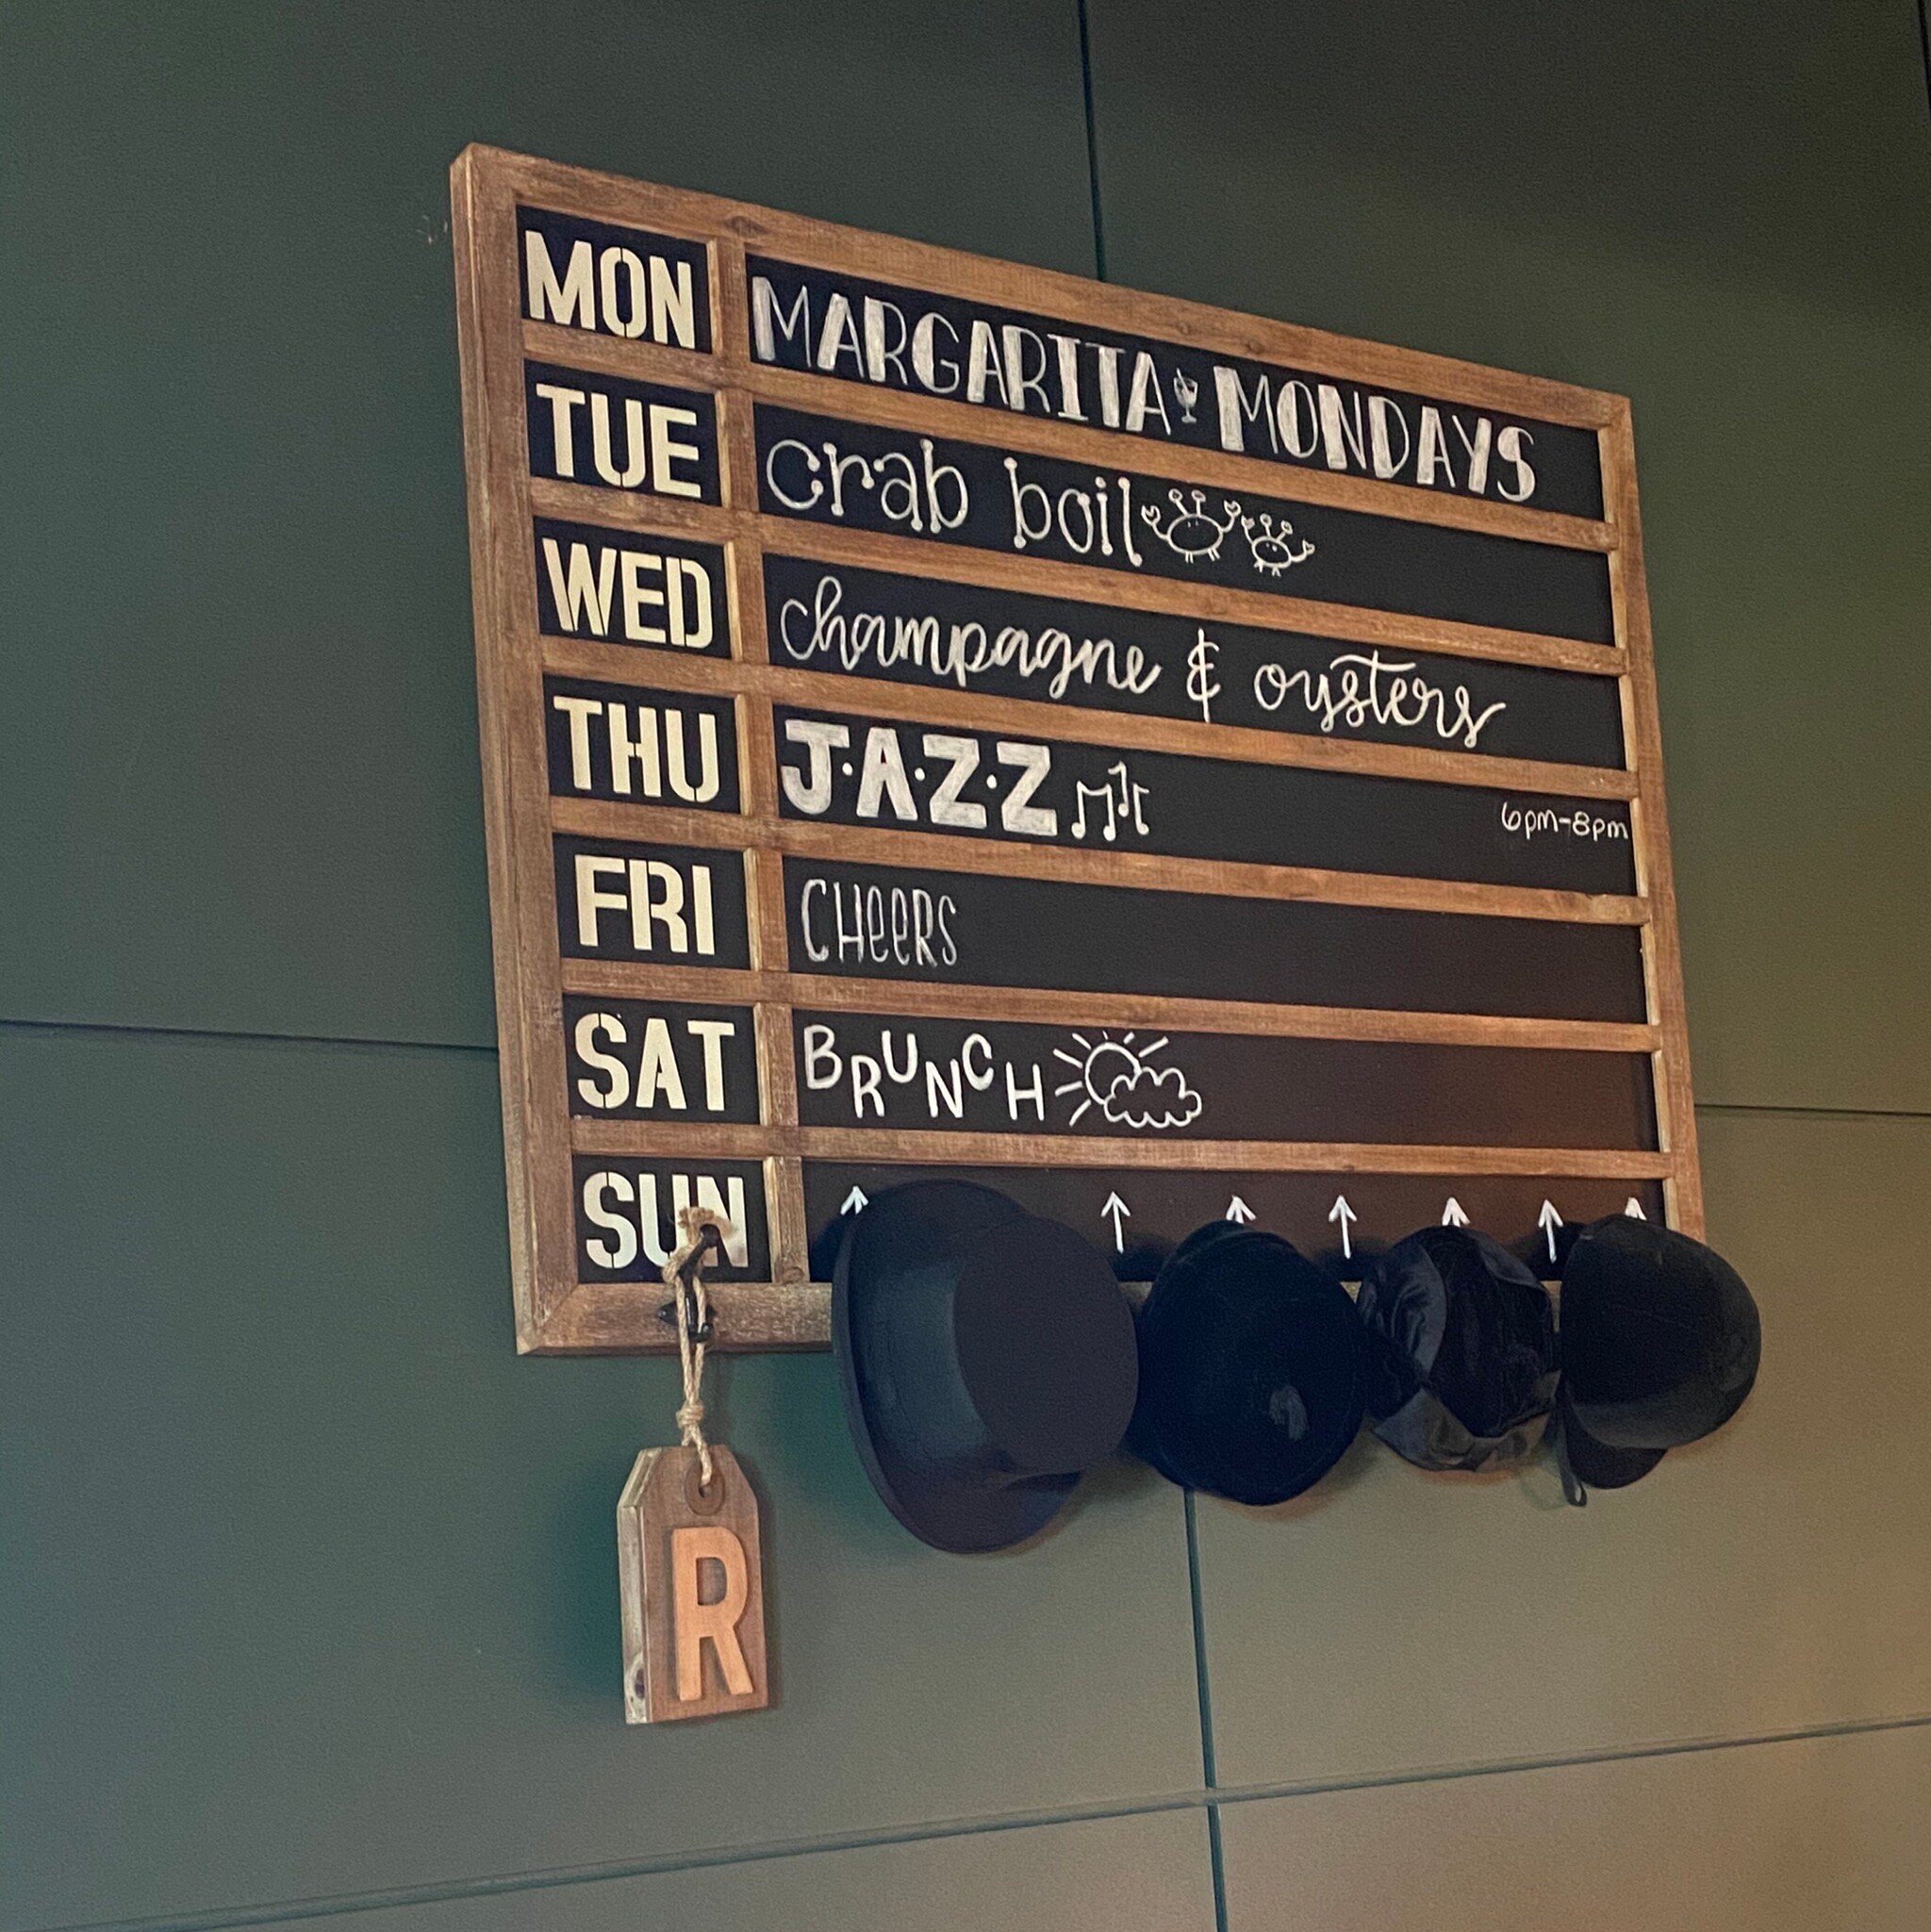 MON MARGARITA MONDAYS
TUE crab boil
WED champagne & oysters
THU J·A·Z·Z 6pm-8pm
FRI CHeeRS
SAT BRUNCH
SUN
R